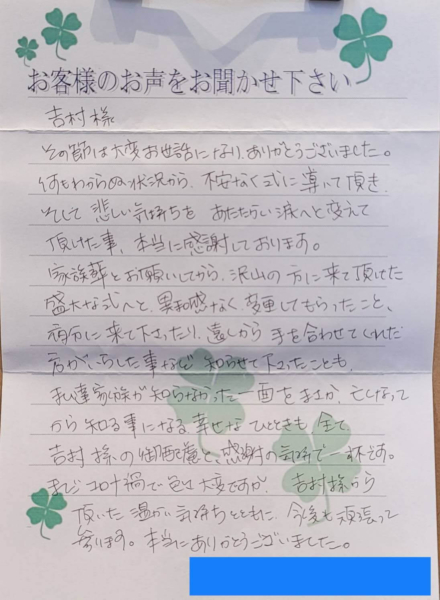 お客様のお声をお聞かせ下さい
吉村様
その節は大変お世話になり、ありがとうございました。
何もわからぬ状況から、不安なく式に導いて頂き、
そして悲しい気持ちをあたたかい涙へと変えて
頂けた事、本当に感謝しております。
家族葬とお願いしてから、沢山の方に来て頂けた
盛大な式へと、異和感なく変更してもらったこと、
に来て下さったり、遠くから手を合わせてくれた
方がいらした事など知らせて下さったことも、
私達家族が知らなかった一面をまさか、亡くなって
から知る事になる幸せなひとときも全て、
吉村様の御配慮と、感謝の気持で一杯です。
まだコロナ禍で色々大変ですが、吉村様から
頂いた温かい気持ちとともに、今後も頑張って
参ります。本当にありがとうございました。